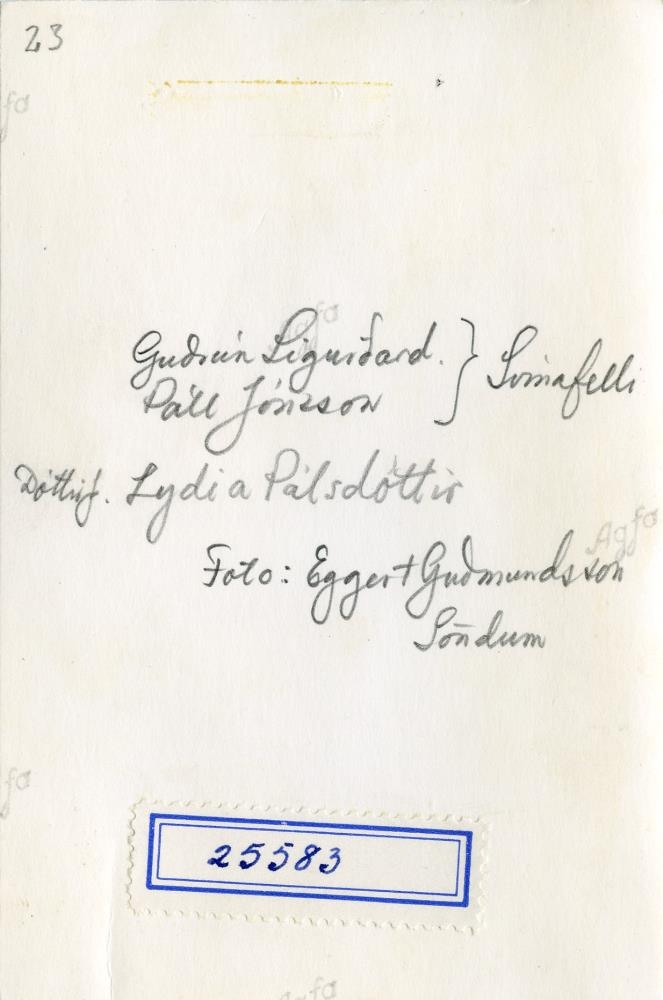 23
Guðrún Sigurðard. } Svínafelli
Páll Jónsson
Dóttir þ. Lydia Pálsdóttir
Agfa
Foto: Eggert Guðmundsson
Söndum
25583